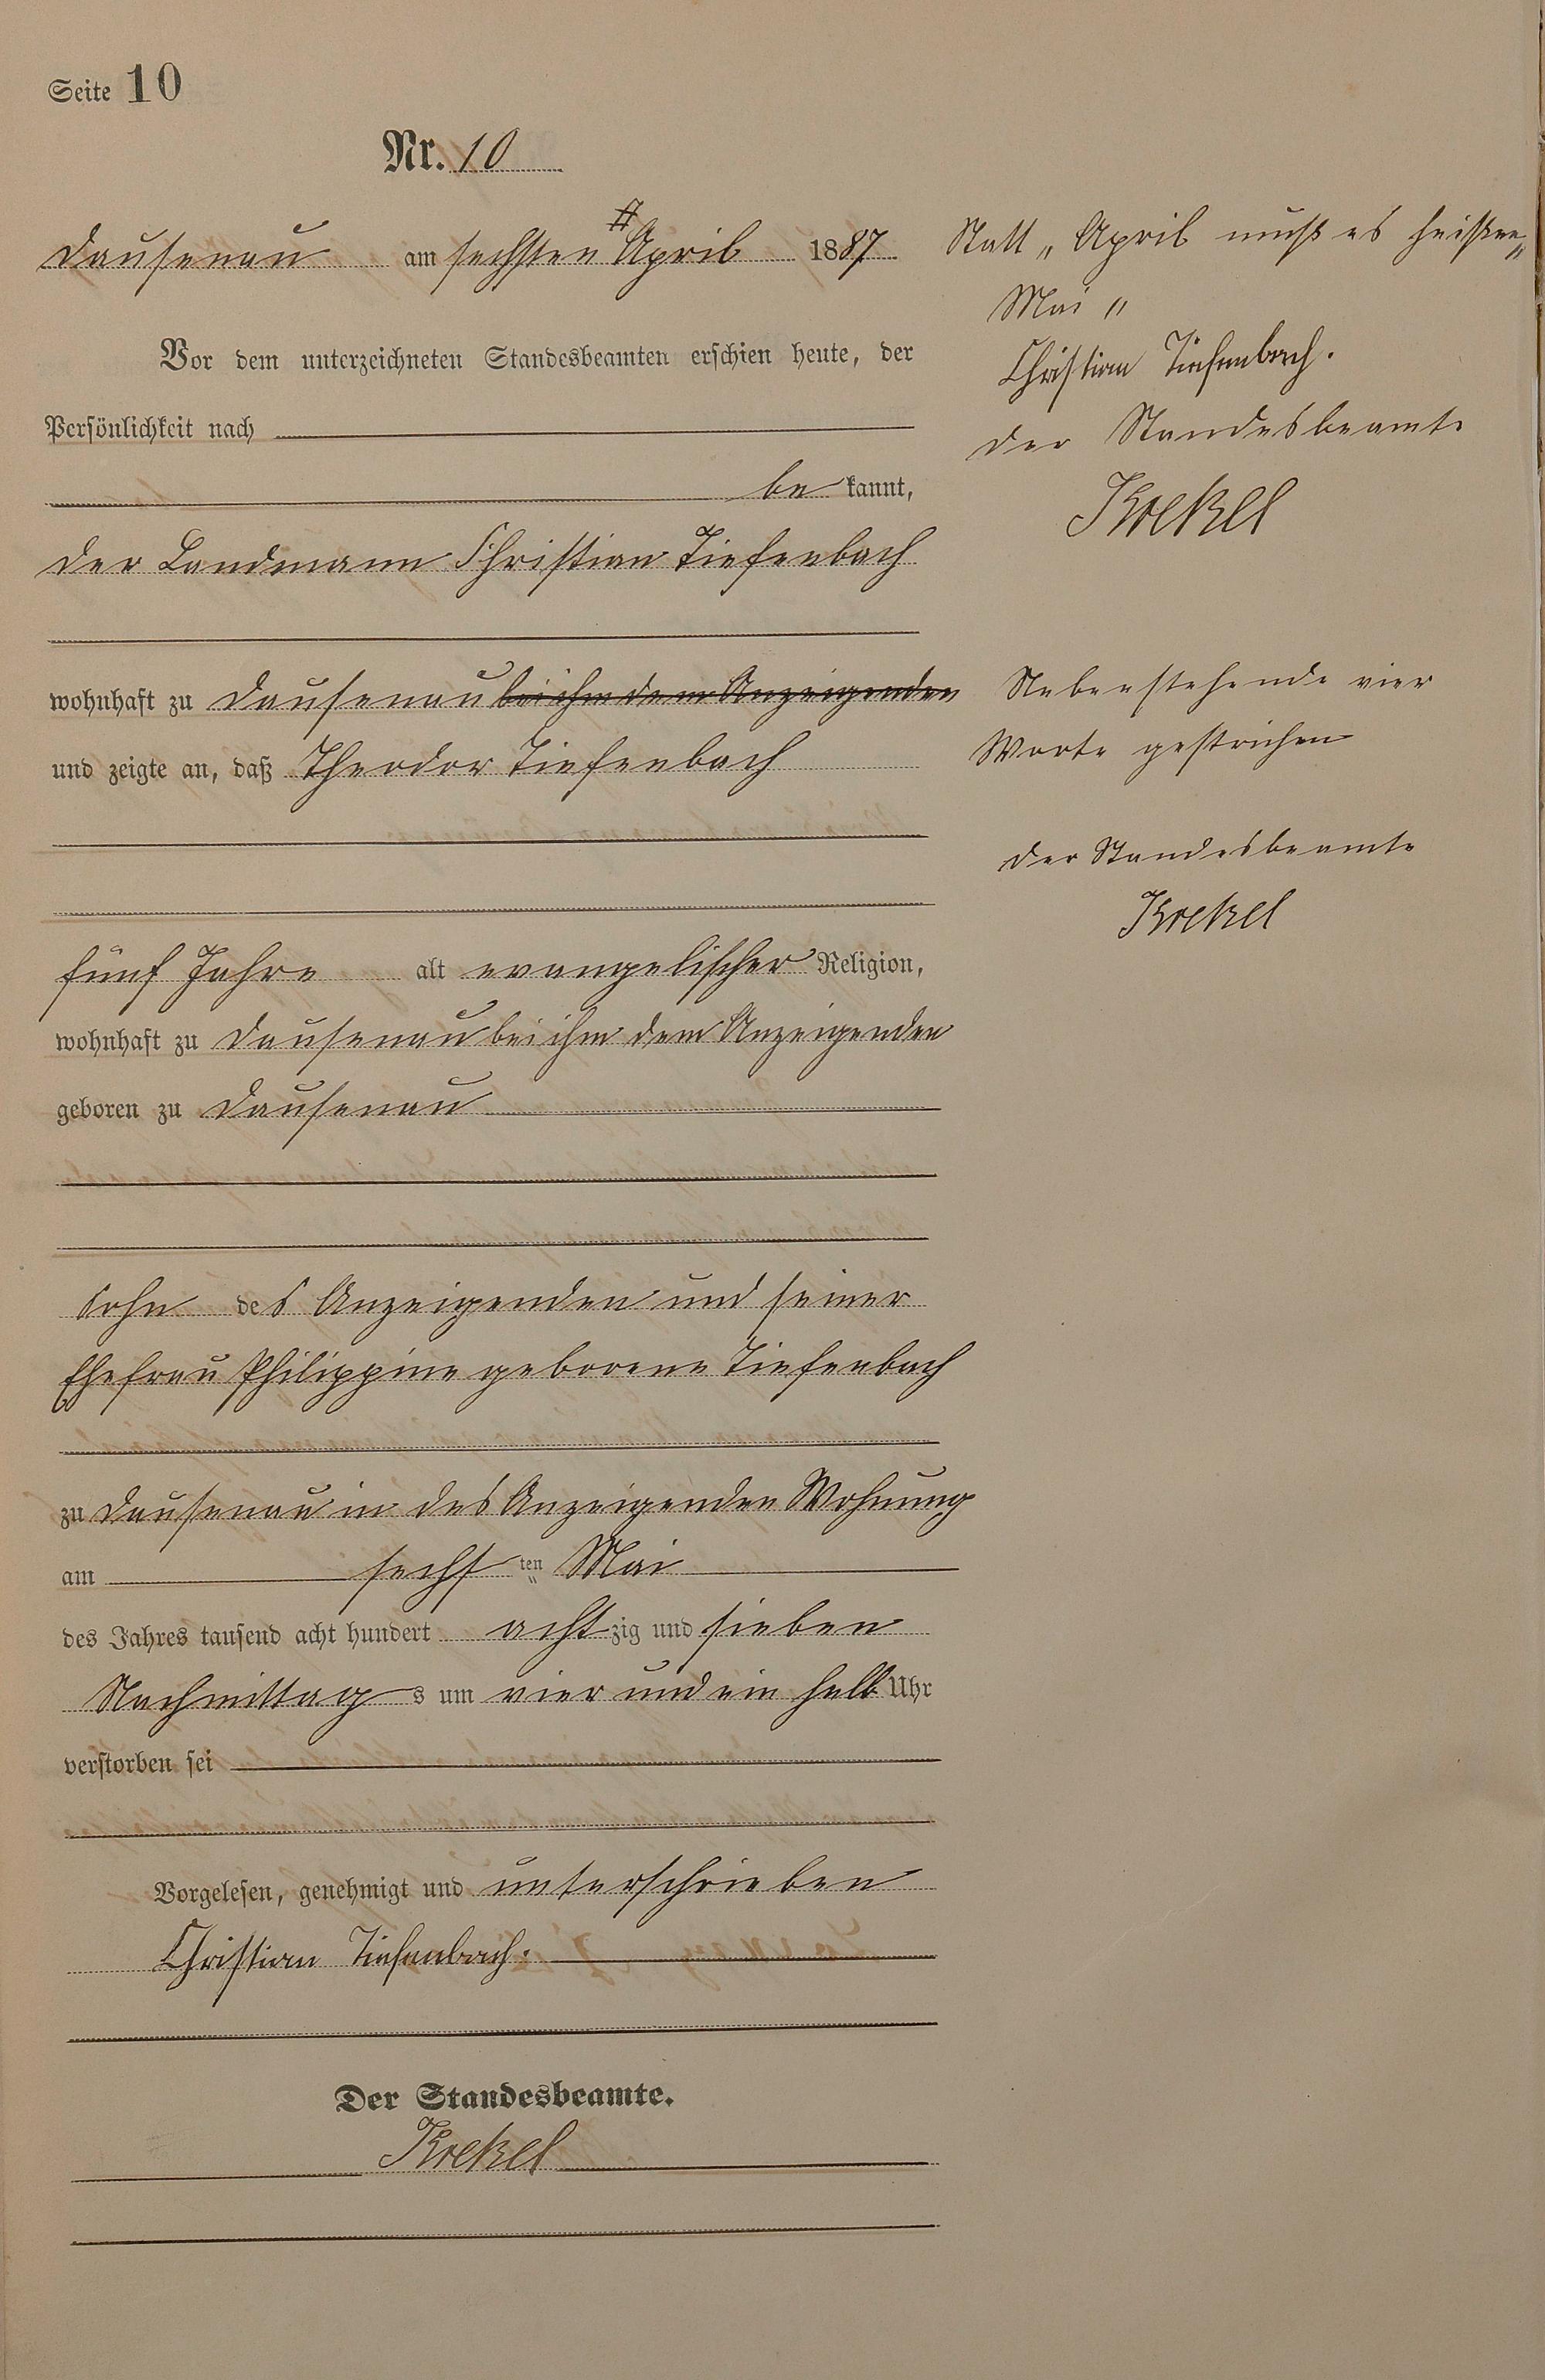 Seite 10
Nr. 10
Dausenau am sechsten # April 1887.
Vor dem unterzeichneten Standesbeamten erschien heute, der
Persönlichkeit nach
be kannt,
der Landmann Christian Tiefenbach
wohnhaft zu Dausenau bei ihm dem Anzeigenden
und zeigte an, daß Theodor Tiefenbach
fünf Jahre alt evangelischer Religion,
wohnhaft zu Dausenau bei ihm dem Anzeigenden
geboren zu Dausenau
Sohn des Anzeigenden und seiner
Ehefrau Philippine geborene Tiefenbach
zu Dausenau in des Anzeigenden Wohnung
am sechs ten Mai
des Jahres tausend acht hundert achtzig und sieben
Nachmittags um vier und ein halb Uhr
verstorben sei
Vorgelesen, genehmigt und unterschrieben
Christian Tiefenbach.
Der Standesbeamte.
Krekel
Statt „ April muß es heißen „
Mai "
Christian Tiefenbach.
Der Standesbeamte
Krekel
Nebenstehende vier
Worte gestrichen
Der Standesbeamte
Krekel